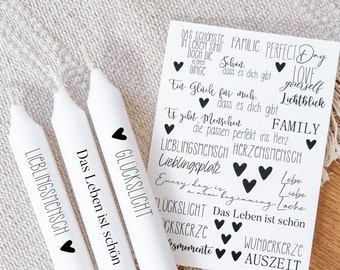 LIEBLINGSMENSCH
Das Leben ist schön
GLÜCKSLICHT
DAS SCHÖNSTE
IM LEBEN SIND
DOCH DIE
DINGE
FAMILIE
PERFECT Day
Schön,
dass es dich gibt
LOVE
yourself
Ein Glück für mich,
dass es dich gibt
Lichtblick
Es gibt Menschen
die passen perfekt ins Herz
FAMILY
LIEBLINGSMENSCH
HERZENSMENSCH
Lieblingsplatz
Every day is
a new beginning
Lebe
Liebe
Lache
GLÜCKSLICHT
Das Leben ist schön
WUNDERKERZE
AUSZEIT